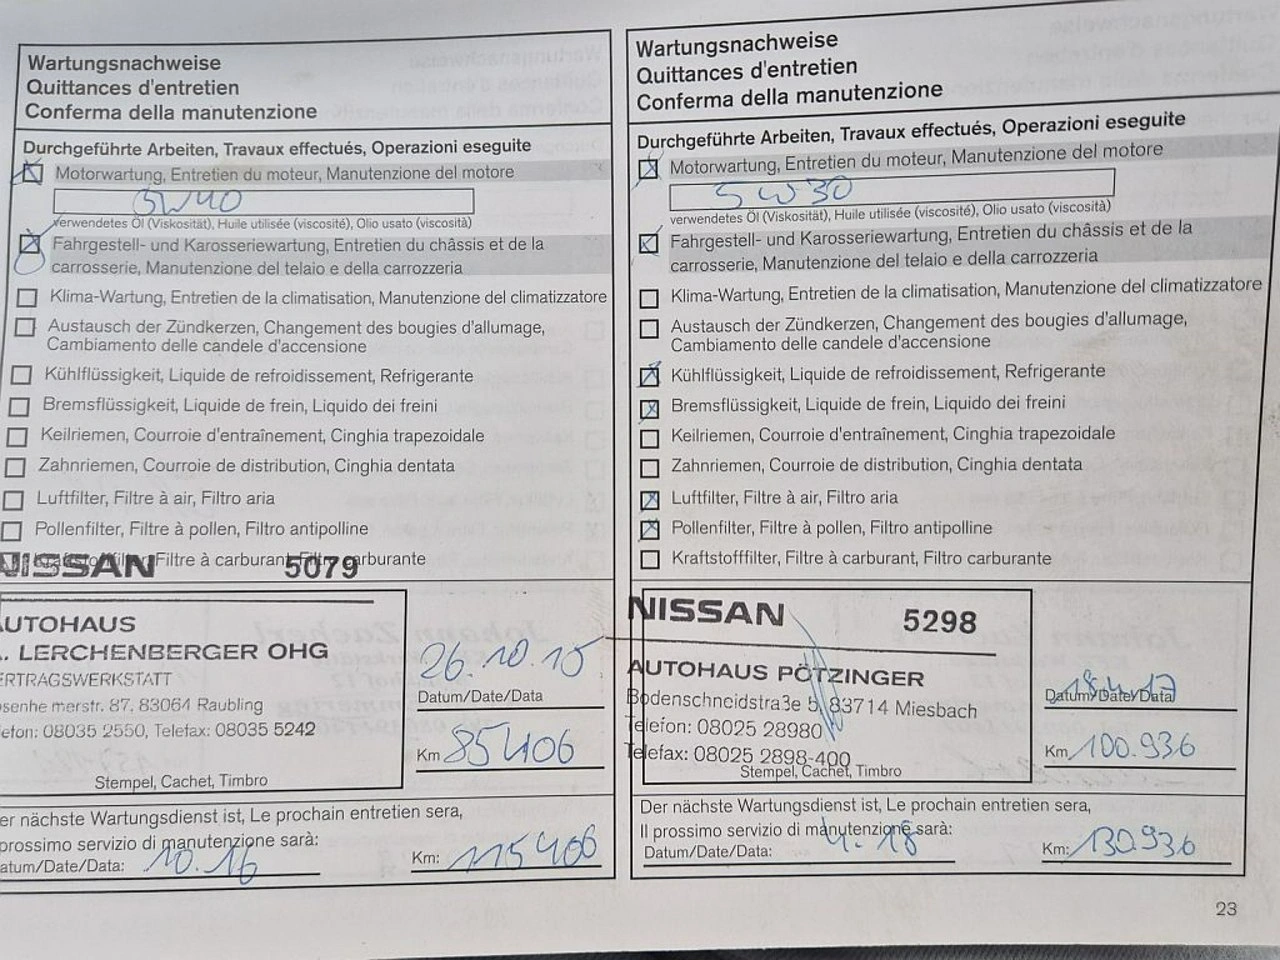 Wartungsnachweise
Quittances d'entretien
Conferma della manutenzione
Durchgeführte Arbeiten, Travaux effectués, Operazioni eseguite
Motorwartung, Entretien du moteur, Manutenzione del motore
5W40
verwendetes Öl (Viskosität), Huile utilisée (viscosité), Olio usato (viscosità)
Fahrgestell- und Karosseriewartung, Entretien du châssis et de la
carrosserie, Manutenzione del telaio e della carrozzeria
Klima-Wartung, Entretien de la climatisation, Manutenzione del climatizzatore
Austausch der Zündkerzen, Changement des bougies d'allumage,
Cambiamento delle candele d'accensione
Kühlflüssigkeit, Liquide de refroidissement, Refrigerante
Bremsflüssigkeit, Liquide de frein, Liquido dei freini
Keilriemen, Courroie d'entraînement, Cinghia trapezoidale
Zahnriemen, Courroie de distribution, Cinghia dentata
Luftfilter, Filtre à air, Filtro aria
Pollenfilter, Filtre à pollen, Filtro antipolline
Kraftstofffilter, Filtre à carburant, Filtro carburante
NISSAN 5079
AUTOHAUS
LERCHENBERGER OHG
ERTRAGSWERKSTATT
merstr. 87, 83064 Raubling
efon: 08035 2550, Telefax: 08035 5242
Stempel, Cachet, Timbro
26.10.15
Datum/Date/Data
Km 85406
er nächste Wartungsdienst ist, Le prochain entretien sera,
prossimo servizio di manutenzione sarà:
atum/Date/Data: 10.16
Km: 115406
Wartungsnachweise
Quittances d'entretien
Conferma della manutenzione
Durchgeführte Arbeiten, Travaux effectués, Operazioni eseguite
Motorwartung, Entretien du moteur, Manutenzione del motore
5W30
verwendetes Öl (Viskosität), Huile utilisée (viscosité), Olio usato (viscosità)
Fahrgestell- und Karosseriewartung, Entretien du châssis et de la
carrosserie, Manutenzione del telaio e della carrozzeria
Klima-Wartung, Entretien de la climatisation, Manutenzione del climatizzatore
Austausch der Zündkerzen, Changement des bougies d'allumage,
Cambiamento delle candele d'accensione
Kühlflüssigkeit, Liquide de refroidissement, Refrigerante
Bremsflüssigkeit, Liquide de frein, Liquido dei freini
Keilriemen, Courroie d'entraînement, Cinghia trapezoidale
Zahnriemen, Courroie de distribution, Cinghia dentata
Luftfilter, Filtre à air, Filtro aria
Pollenfilter, Filtre à pollen, Filtro antipolline
Kraftstofffilter, Filtre à carburant, Filtro carburante
NISSAN 5298
AUTOHAUS PÖTZINGER
Bodenschneidstraße 5, 83714 Miesbach
Telefon: 08025 28980
Telefax: 08025 2898-400
Stempel, Cachet, Timbro
Datum/Date/Data
Km 100.936
Der nächste Wartungsdienst ist, Le prochain entretien sera,
Il prossimo servizio di manutenzione sarà:
Datum/Date/Data: 4.18
Km: 130.936
23